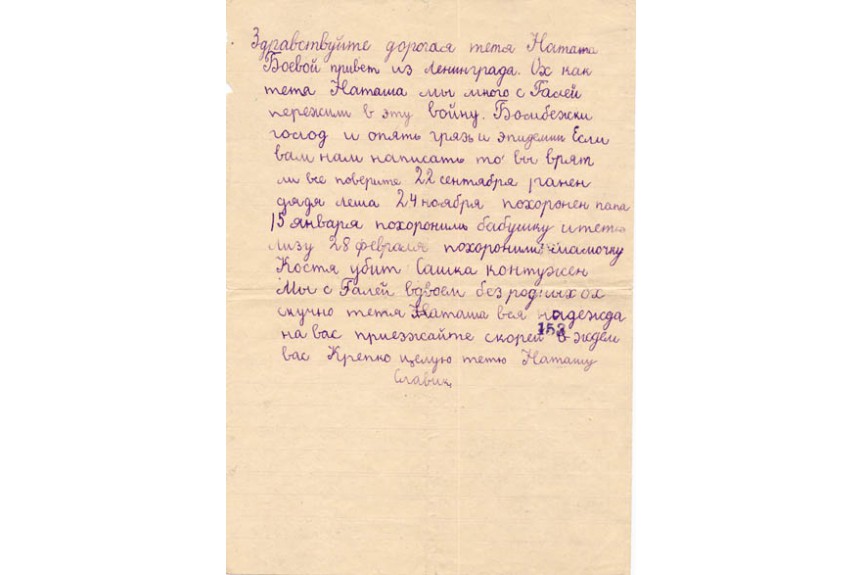 Здравствуйте дорогая тетя Наташа
Боевой привет из Ленинграда. Ох как
тетя Наташа мы много с Галей
пережили в эту войну. Бомбежки
голод и опять грязь и эпидемии Если
вам нам написать то вы врят
ли все поверите 22 сентября ранен
дядя леша 24 ноября похоронен папа
15 января похоронили бабушку и тетю
лизу 28 февраля похоронили мамочку
Костя убит Сашка контужен
Мы с Галей вдвоем без родных ох
скучно тетя Наташа вся надежда
на вас приезжайте скорей ждем
153
вас Крепко целую тетю Наташу
Славик